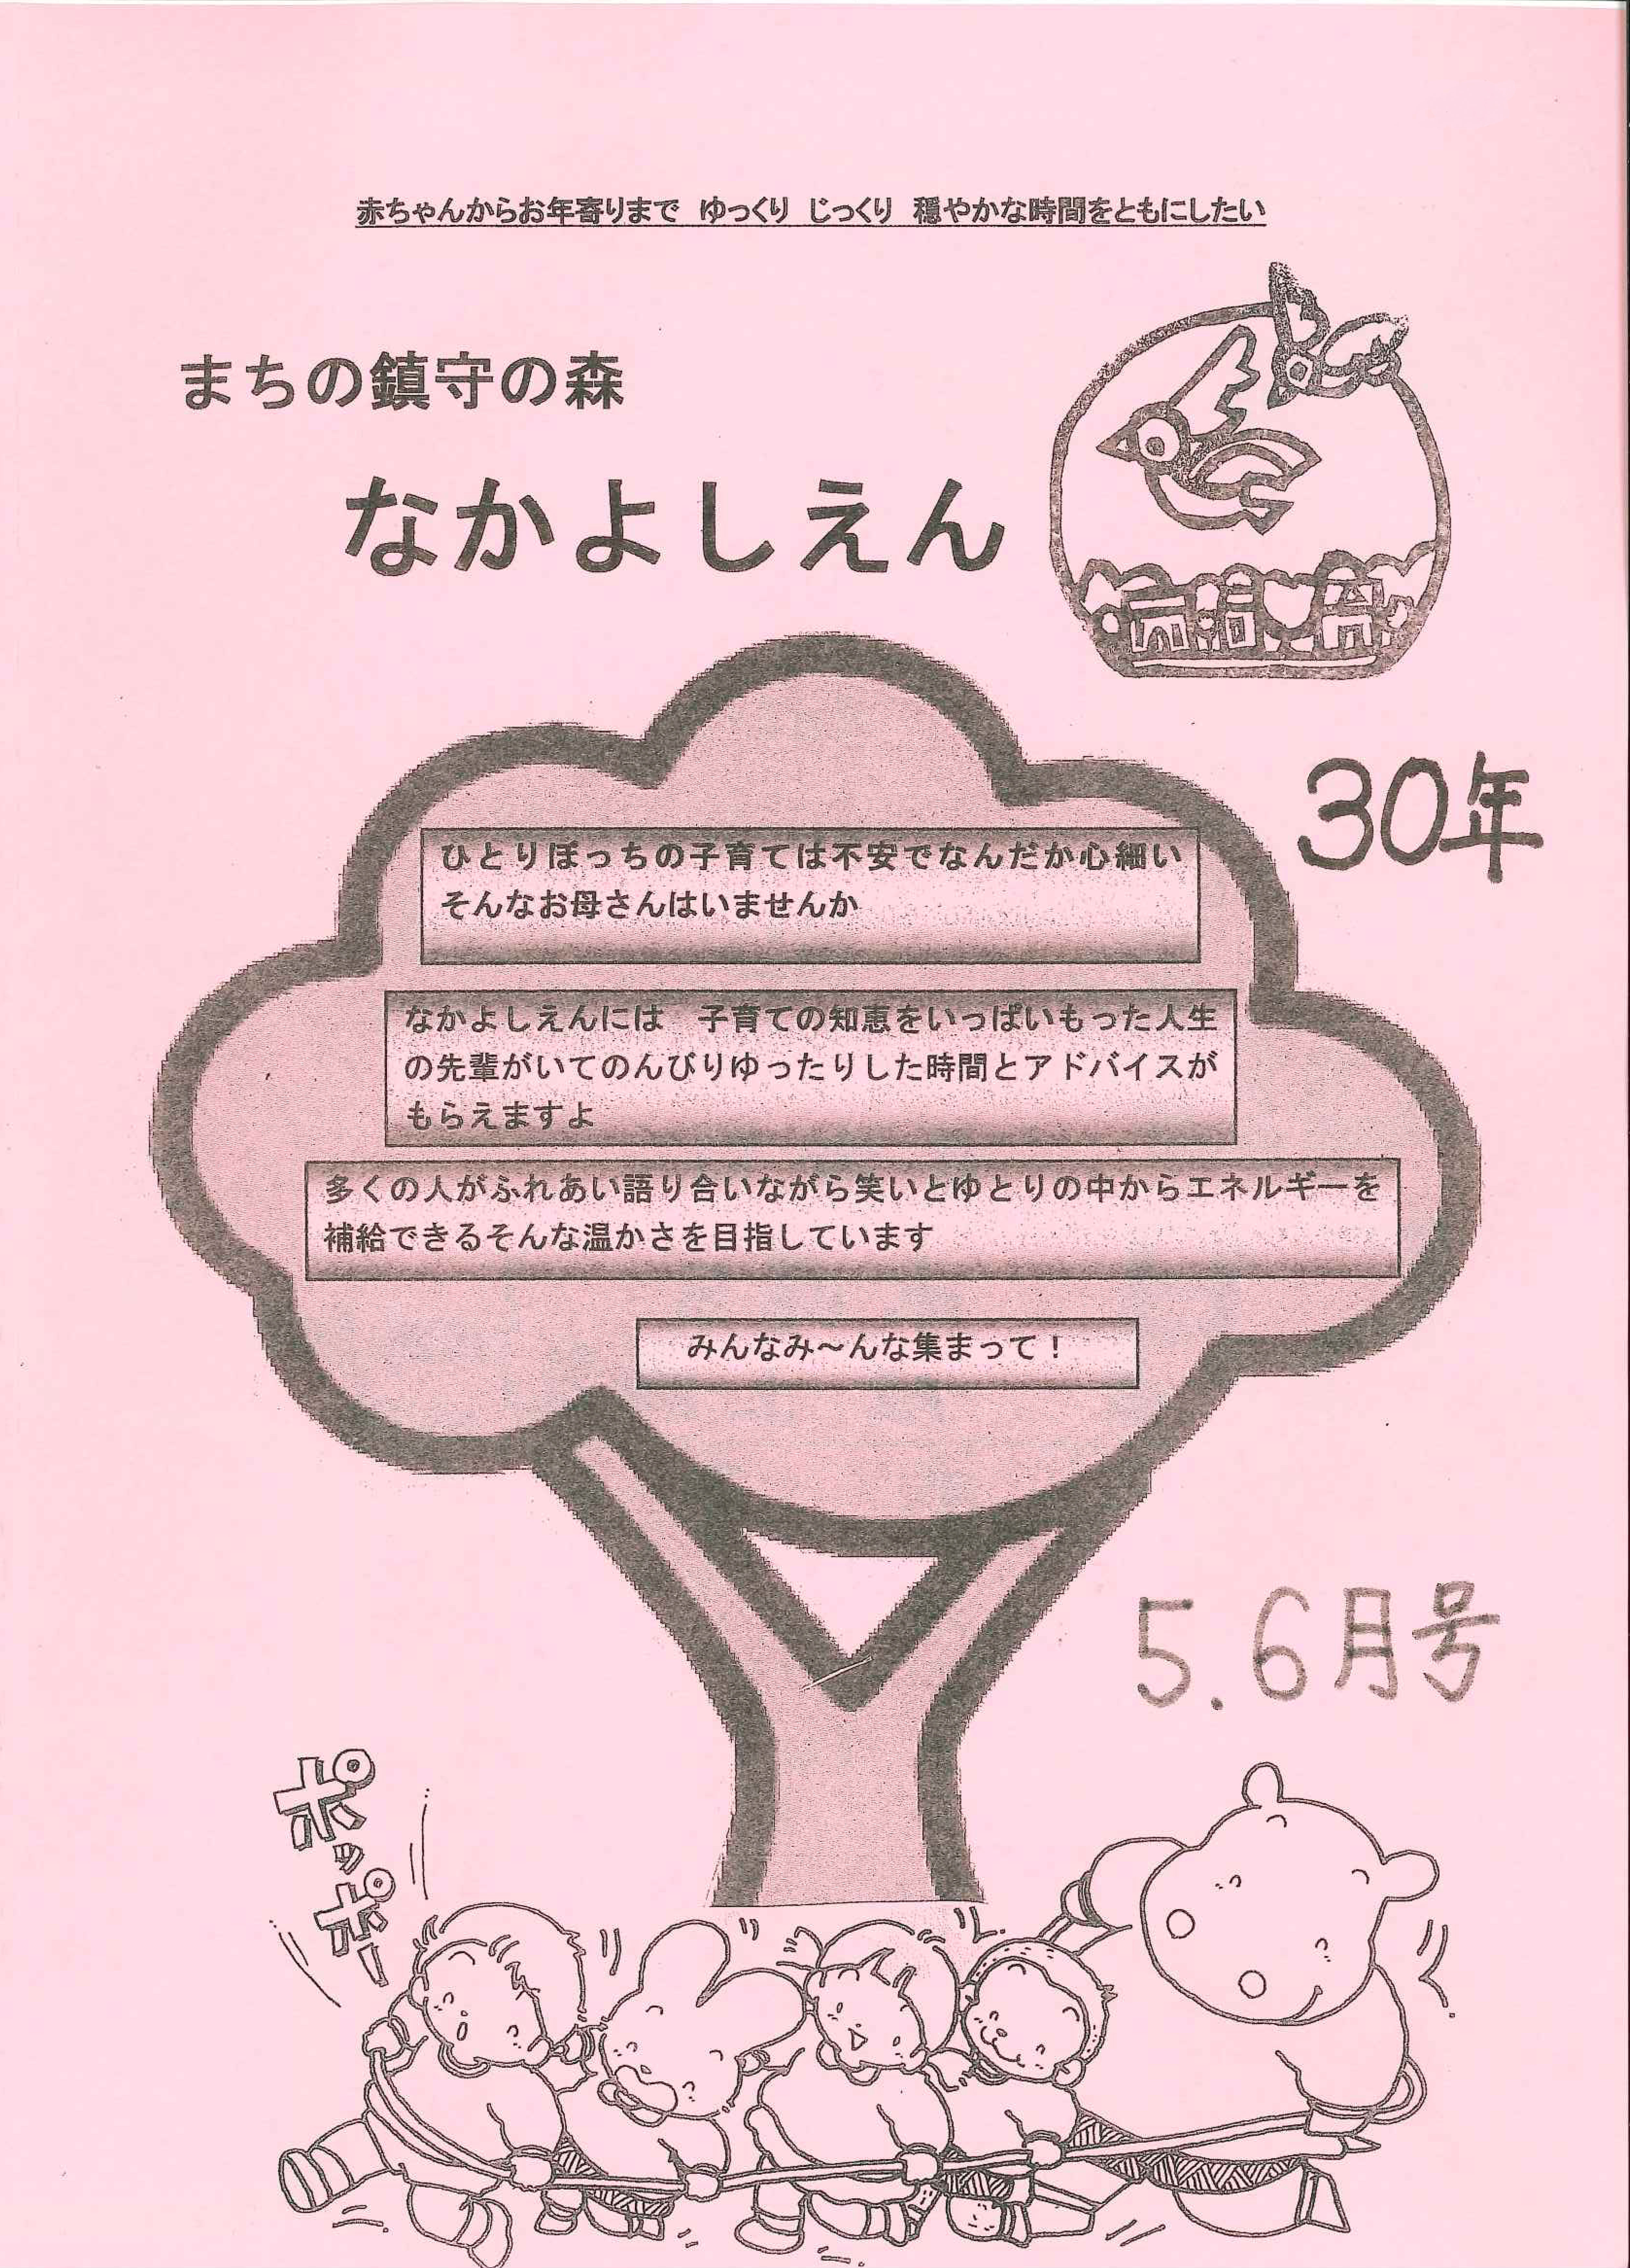 赤ちゃんからお年寄りまで　ゆっくり　じっくり　穏やかな時間をともにしたい
まちの鎮守の森
なかよしえん
30年
ひとりぼっちの子育ては不安でなんだか心細い
そんなお母さんはいませんか
なかよしえんには　子育ての知恵をいっぱいもった人生
の先輩がいてのんびりゆったりした時間とアドバイスが
もらえますよ
多くの人がふれあい語り合いながら笑いとゆとりの中からエネルギーを
補給できるそんな温かさを目指しています
みんなみ～んな集まって！
5.6月号
ポッポー